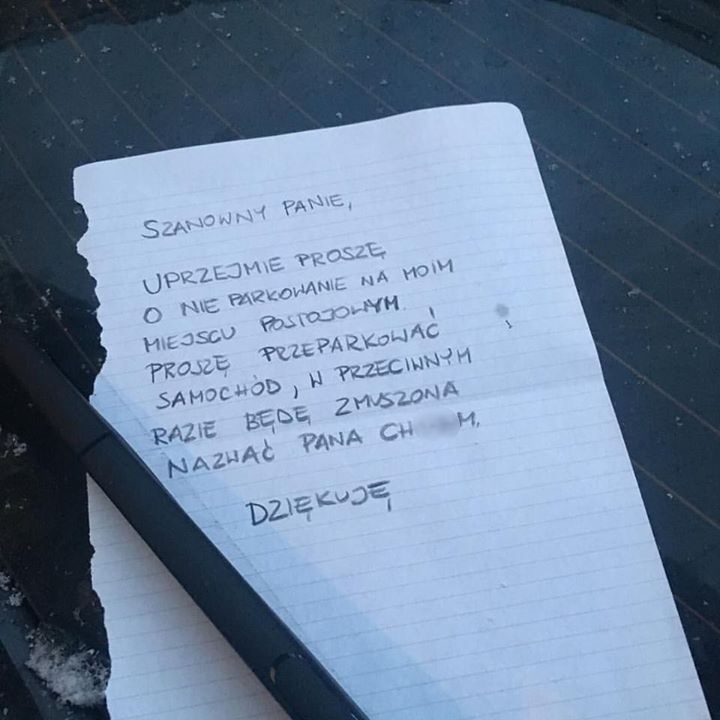 SZANOWNY PANIE,
UPRZEJMIE PROSZĘ
O NIE PARKOWANIE NA MOIM
MIEJSCU POSTOJOWYM.
PROSZĘ PRZEPARKOWAĆ
SAMOCHÓD, W PRZECIWNYM
RAZIE BĘDĘ ZMUSZONA
NAZWAĆ PANA
DZIĘKUJĘ